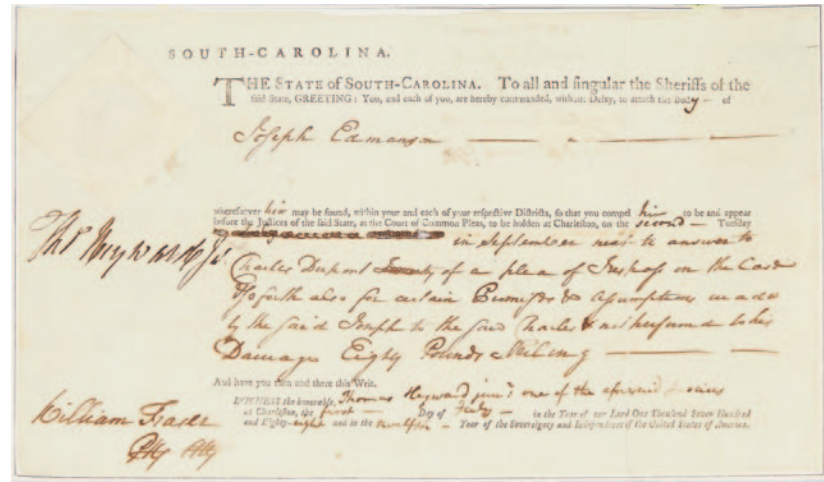 SOUTH-CAROLINA.
THE STATE of SOUTH-CAROLINA. To all and singular the Sheriffs of the
said State, GREETING: You, and each of you, are hereby commanded, without Delay, to attach the Body — of
Joseph Edmanson
wheresoever him may be found, within your and each of your respective Districts, so that you compel him to be and appear
before the Justices of the said State, at the Court of Common Pleas, to be holden at Charleston, on the second — Tuesday
in September next to answer to
Charles Dupont of a plea of Trespass on the Case
& so forth also for certain Promises & Assumptions made
by the said Joseph to the said Charles & not performed to his
Damage Eighty Pounds Sterling
And have you then and there this Writ.
WITNESS the honorable Thomas Heyward junr. one of the aforesaid Justices
at Charleston, the first — Day of July — in the Year of our Lord One Thousand Seven Hundred
and Eighty-eight and in the twelfth — Year of the Sovereignty and Independence of the United States of America.
Thos Heyward Jr
William Fraser
Atty